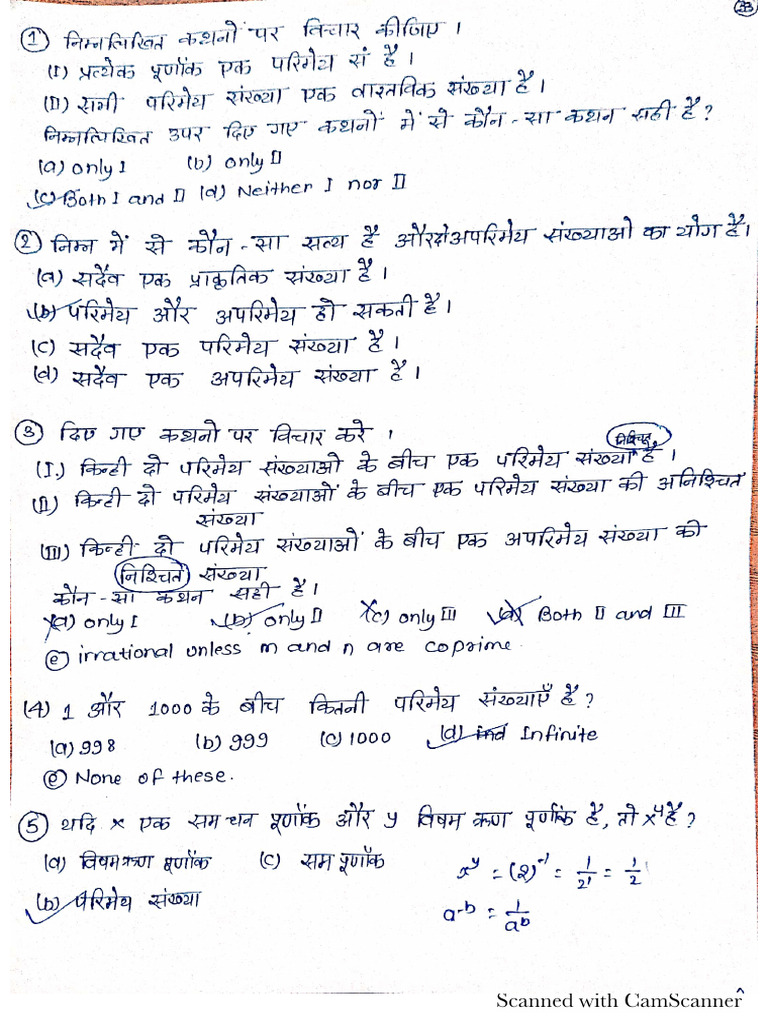 33
① निम्नलिखित कथनों पर विचार कीजिए।
(I) प्रत्येक पूर्णांक एक परिमेय सं है।
(II) सभी परिमेय संख्या एक वास्तविक संख्या है।
निम्नलिखित उपर दिए गए कथनों में से कौन-सा कथन सही है?
(a) only I (b) only II
(c) Both I and II (d) Neither I nor II
② निम्न में से कौन-सा सत्य है और दो अपरिमेय संख्याओ का योग है।
(a) सदैव एक प्राकृतिक संख्या है।
(b) परिमेय और अपरिमेय हो सकती है।
(c) सदैव एक परिमेय संख्या है।
(d) सदैव एक अपरिमेय संख्या है।
③ दिए गए कथनो पर विचार करे।
(I.) किन्ही दो परिमेय संख्याओ के बीच एक परिमेय संख्या निश्चित है।
(II) किन्ही दो परिमेय संख्याओं के बीच एक परिमेय संख्या की अनिश्चित
संख्या
(III) किन्ही दो परिमेय संख्याओं के बीच एक अपरिमेय संख्या की
निश्चित संख्या
कौन-सा कथन सही है।
(a) only I (b) only II (c) only III (d) Both II and III
(e) irrational unless m and n are coprime.
(4) 1 और 1000 के बीच कितनी परिमेय संख्याएँ है?
(a) 998 (b) 999 (c) 1000 (d) Infinite
(e) None of these.
⑤ यदि x एक सम धन पूर्णांक और y विषम ऋण पूर्णांक है, तो x^y है?
(a) विषम ऋण पूर्णांक (c) सम पूर्णांक
x^y = (2)^-1 = 1/2^1 = 1/2
(b) परिमेय संख्या
a^-b = 1/a^b
Scanned with CamScanner